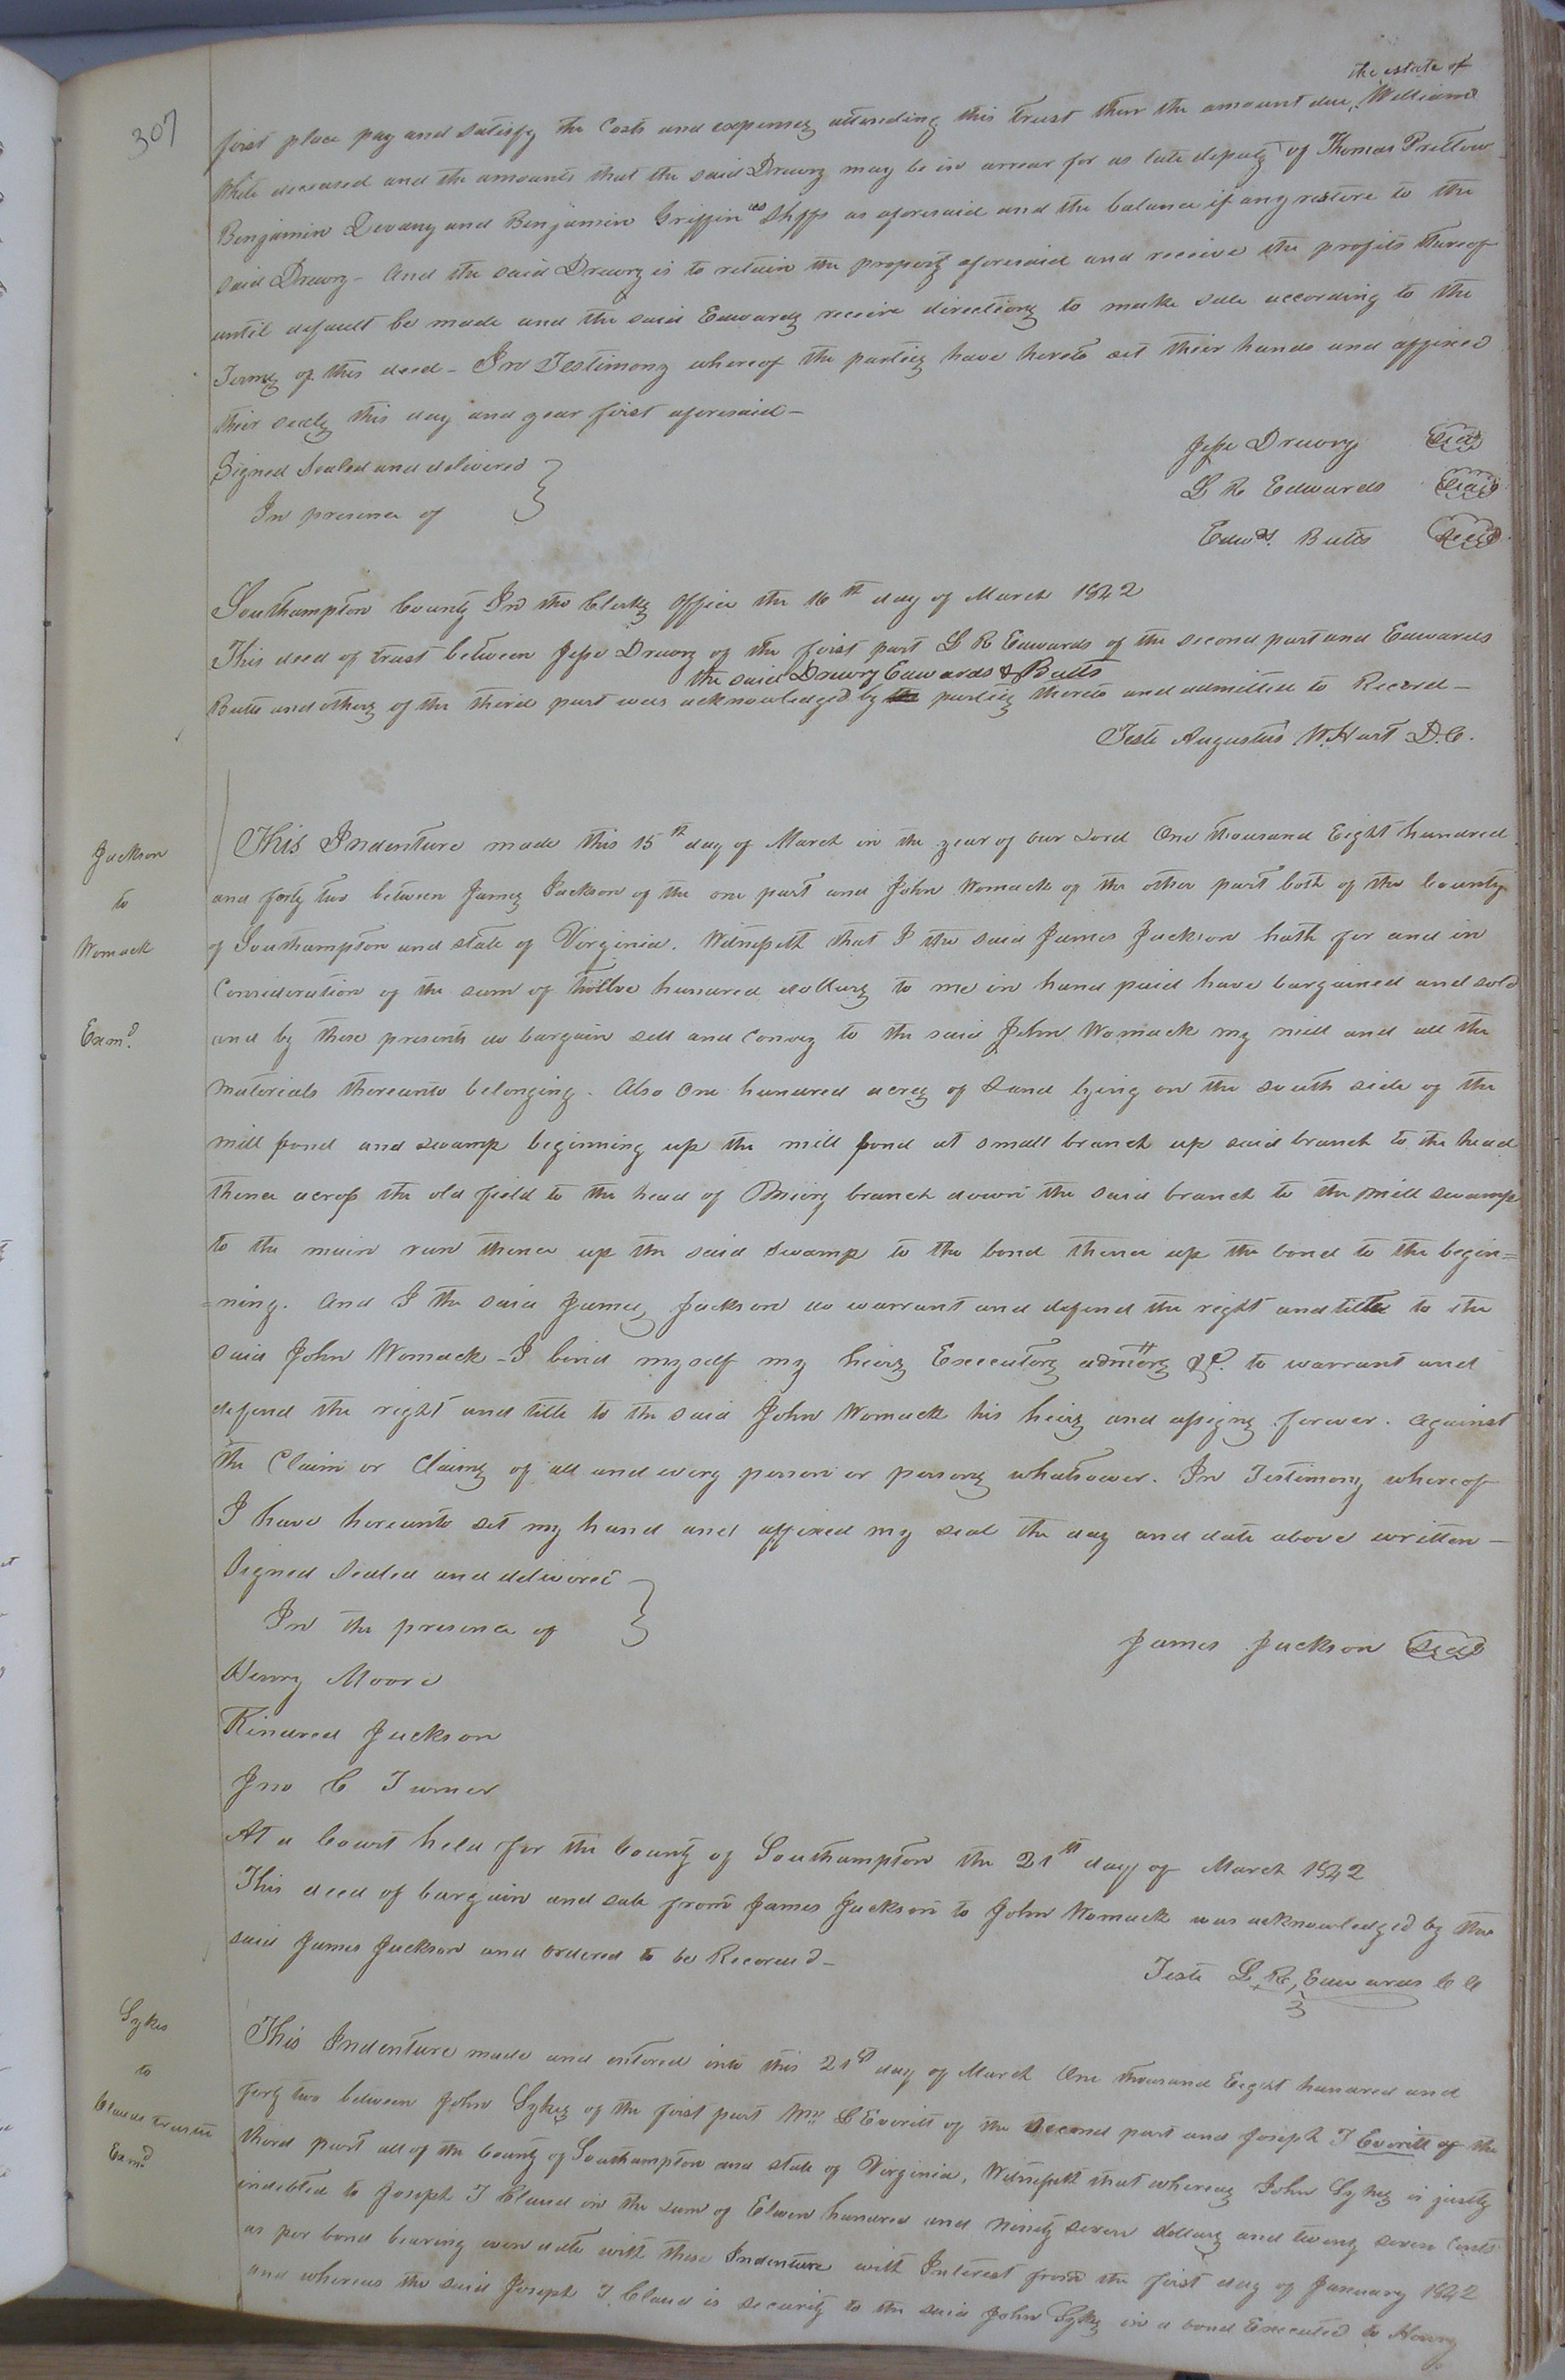 307
the estate of
first place pay and satisfy the Costs and expenses attending this trust then the amount due, William
White deceased and the amounts that the said Drewry may be in arrear for as late deputy of Thomas Pretlow
Benjamin Devany and Benjamin Griffin as Shffs as aforesaid and the balance if any restore to the
said Drewry - And the said Drewry is to retain the property aforesaid and receive the profits thereof
until default be made and the said Edwards receive directions to make sale according to the
Terms of this deed - In Testimony whereof the parties have hereto set their hands and affixed
their seals this day and year first aforesaid -
Jesse Drewry Seal
Signed Sealed and delivered
L R Edwards Seal
In presence of
Edwds. Butts Seal
Southampton County In the Clerks Office the 16th day of March 1842
This deed of trust between Jesse Drewry of the first part L R Edwards of the second part and Edwards
the said Drewry Edwards & Butts
Butts and others of the third part was acknowledged by the parties thereto and admitted to Record -
Teste Augustus W. Hart D.C.
Jackson
to
Womack
Exmd.
This Indenture made this 15th day of March in the year of our Lord One thousand Eight hundred
and forty two between James Jackson of the one part and John Womack of the other part both of the County
of Southampton and state of Virginia. Witnesseth that I the said James Jackson hath for and in
Consideration of the sum of twelve hundred dollars to me in hand paid have bargained and sold
and by these presents do bargain sell and convey to the said John Womack my mill and all the
materials thereunto belonging. Also One hundred acres of Land lying on the south side of the
mill pond and swamp beginning up the mill pond at small branch up said branch to the head
thence across the old field to the head of Miery branch down the said branch to the mill swamp
to the main run thence up the said swamp to the bond thence up the bond to the begin=
=ning. And I the said James Jackson do warrant and defend the right and title to the
said John Womack - I bind myself my heirs Executors admors &C. to warrant and
defend the right and title to the said John Womack his heirs and assigns forever. against
the Claim or Claims of all and every person or persons whatsoever. In Testimony whereof
I have hereunto set my hand and affixed my seal the day and date above written -
Signed Sealed and delivered
In the presence of
James Jackson Seal
Henry Moore
Kindred Jackson
Jno C Turner
At a Court held for the County of Southampton the 21st day of March 1842
This deed of bargain and sale from James Jackson to John Womack was acknowledged by the
said James Jackson and ordered to be Recorded -
Teste L. R. Edwards C C
Sykes
to
Clauds trustee
Exmd
This Indenture made and entered into this 21st day of March One thousand Eight hundred and
forty two between John Sykes of the first part Wm C Everitt of the second part and Joseph T Everitt of the
third part all of the County of Southampton and state of Virginia, Witnesseth that whereas John Sykes is justly
indebted to Joseph T Claud in the sum of Eleven hundred and ninety seven dollars and twenty seven Cents
as per bond bearing even date with these Indenture with Interest from the first day of January 1842
and whereas the said Joseph T. Claud is security to the said John Sykes in a bond Executed to Henry